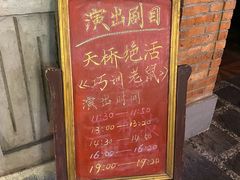 演出剧目
天桥绝活
《巧训老鼠》
演出时间
11:30—11:50
13:00—13:20
14:30—14:50
16:00—16:20
19:00—19:20